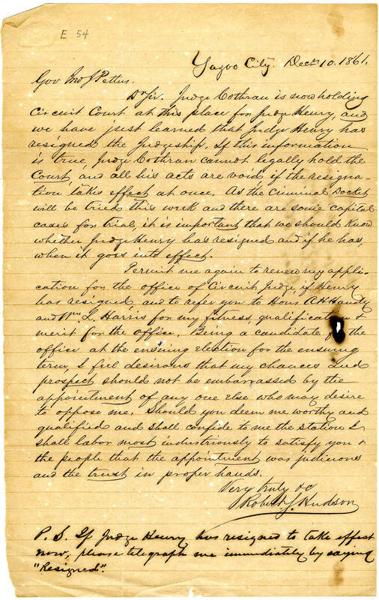 E 54
Yazoo City. Decr 10. 1861.
Gov Jno J Pettus.
Dr Sir. Judge Cothran is now holding
Circuit Court at this place for Judge Henry, and
we have just learned that Judge Henry has
resigned the Judgeship. If this information
is true, Judge Cothran cannot legally hold the
Court and all his acts are void if the resigna-
tion takes effect at once. As the Criminal Docket
will be tried this week and there are some capital
cases for trial, it is important that we should know
whether Judge Henry has resigned and if he has,
when it goes into effect.
Permit me again to renew my appli-
cation for the office of Circuit Judge, if Henry
has resigned, and to refer you to Hons A H Handy
and Wm L. Harris for my fitness, qualification &
merit for the office. Being a candidate the
office at the ensuing election for the ensuing
term, I feel desirous that my chances and
prospect should not be embarrassed by the
appointment of any one else who may desire
to oppose me. Should you deem me worthy and
qualified and shall confide to me the station I
shall labor most industriously to satisfy you &
the people that the appointment was judicious
and the trust in proper hands.
Very truly &c
Robert S. Hudson
P. S. If Judge Henry has resigned to take effect
now, please telegraph me immediately by saying
"Resigned".